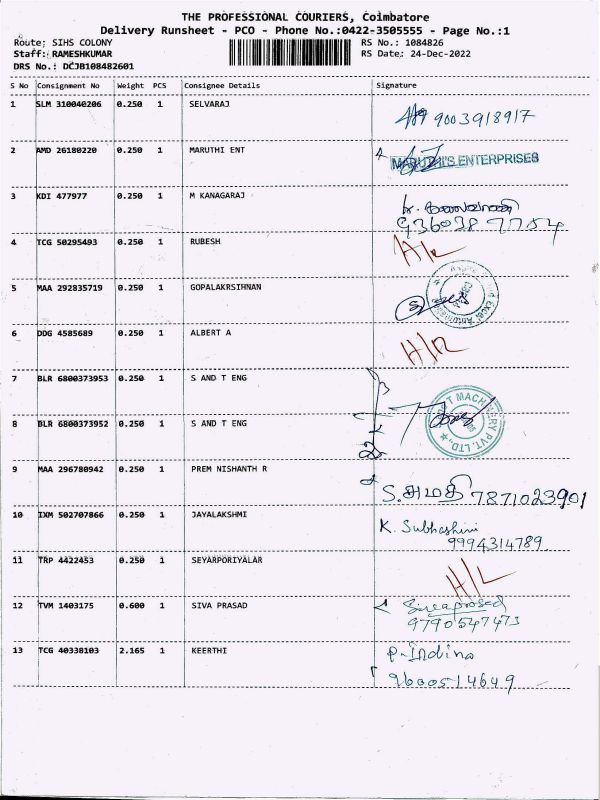 THE PROFESSIONAL COURIERS, Coimbatore
Delivery Runsheet - PCO - Phone No.:0422-3505555 - Page No.:1
Route: SIHS COLONY
RS No.: 1084826
Staff: RAMESHKUMAR
RS Date: 24-Dec-2022
DRS No.: DCJB108482601
S No Consignment No Weight PCS Consignee Details Signature
1 SLM 310040206 0.250 1 SELVARAJ 9003918917
2 AMD 26180220 0.250 1 MARUTHI ENT MARUTHI'S ENTERPRISES
3 KDI 477977 0.250 1 M KANAGARAJ
936038 7754
4 TCG 50295493 0.250 1 RUBESH H/L
5 MAA 292835719 0.250 1 GOPALAKRSIHNAN
6 DDG 4585689 0.250 1 ALBERT A H/R
7 BLR 6800373953 0.250 1 S AND T ENG
8 BLR 6800373952 0.250 1 S AND T ENG T MACHINERY PVT. LTD.
9 MAA 296780942 0.250 1 PREM NISHANTH R S.அமதி 7871023901
10 IXM 502707866 0.250 1 JAYALAKSHMI K. Subhashini
9994314789
11 TRP 4422453 0.250 1 SEYARPORIYALAR H/L
12 TVM 1403175 0.600 1 SIVA PRASAD Sivaprasad
9790547473
13 TCG 40338103 2.165 1 KEERTHI P. Indina
9600514649